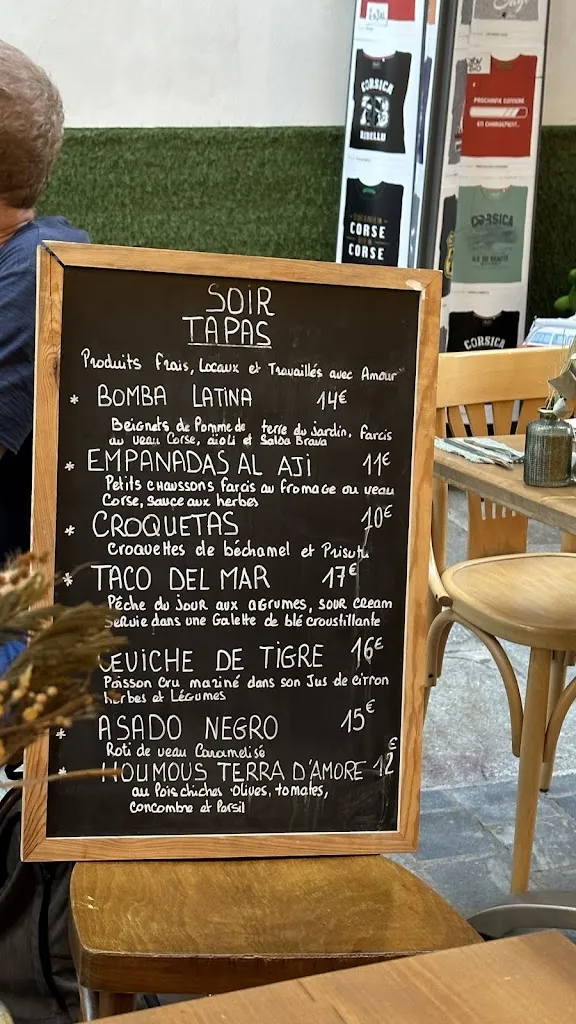 CORSICA
RIBELLU
CORSE
CORSE
PROCHAINE CONNERIE
EN CHARGEMENT...
CORSICA
CORSICA
SOIR
TAPAS
Produits Frais, Locaux et Travaillés avec Amour
* BOMBA LATINA 14€
Beignets de Pomme de terre du jardin, farcis
au veau Corse, aioli et Salsa Brava
* EMPANADAS AL AJI 11€
Petits chaussons farcis au fromage ou veau
Corse, sauce aux herbes
* CROQUETAS 10€
Croquettes de béchamel et Prisutu
* TACO DEL MAR 17€
Pêche du jour aux agrumes, sour cream
Servie dans une Galette de blé croustillante
CEVICHE DE TIGRE 16€
Poisson cru mariné dans son Jus de citron
herbes et Légumes
* ASADO NEGRO 15€
Roti de veau Caramelisé
* HOUMOUS TERRA D'AMORE 12€
au Pois chiches Olives, tomates,
concombre et Persil